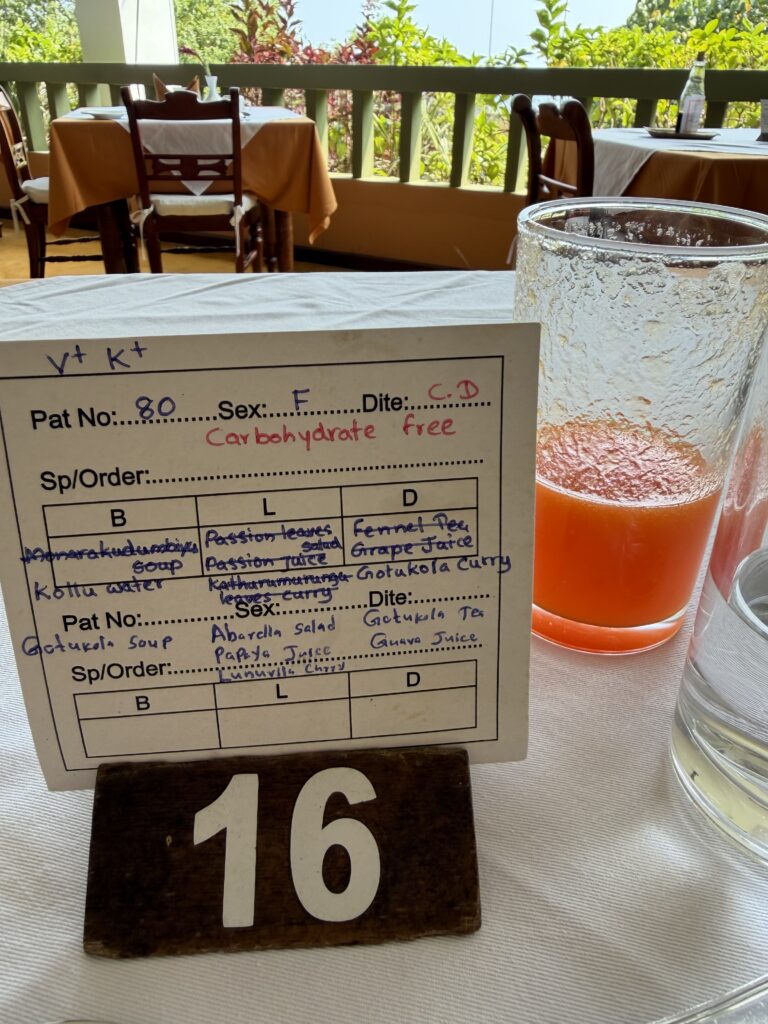 V+ K+
Pat No: 80 Sex: F Dite: C.D
Carbohydrate free
Sp/Order:
B L D
Monarakudumbiya soup
Passion leaves salad
Passion juice
Katharumurunga leaves curry
Fennel Tea
Grape Juice
Kollu water
Gotukola Curry
Pat No: Sex: Dite:
Gotukola Soup
Abarella Salad
Papaya Juice
Lunuvila Curry
Gotukola Tea
Guava Juice
Sp/Order:
B L D
16